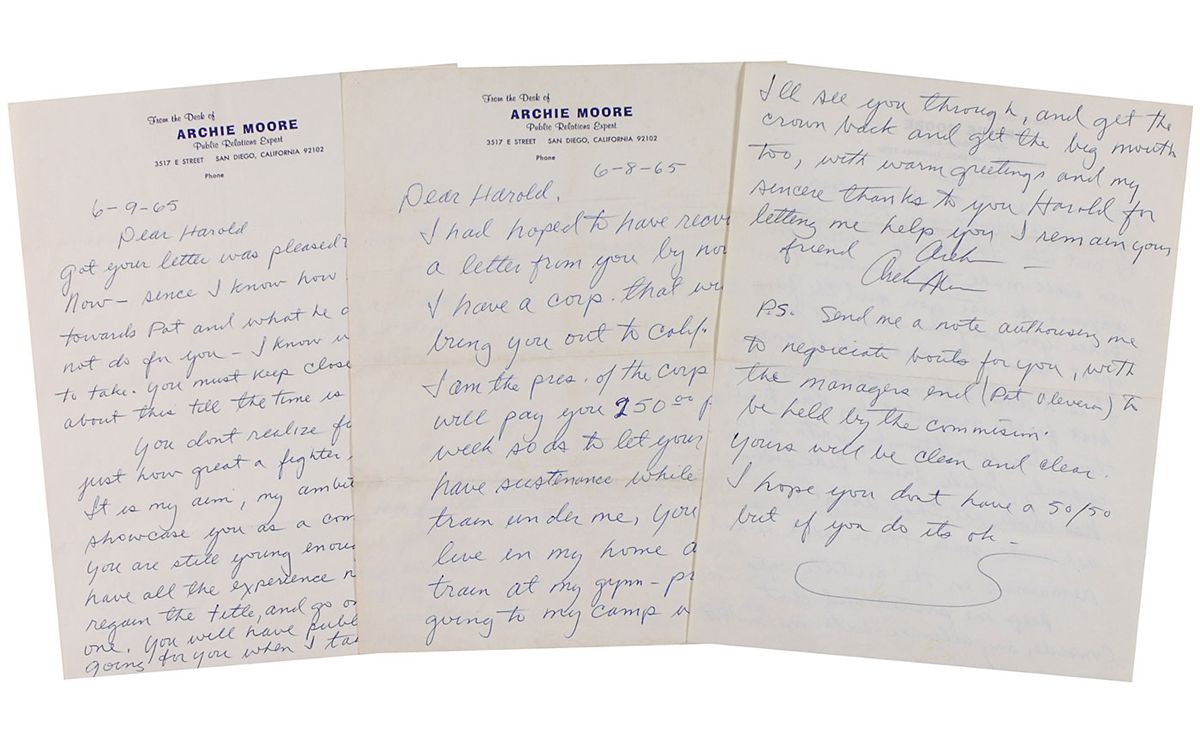 From the Desk of
ARCHIE MOORE
Public Relations Expert
3517 E STREET SAN DIEGO, CALIFORNIA 92102
Phone
6-9-65
Dear Harold
got your letter was pleased
Now - since I know how
towards Pat and what he
not do for you - I know
to take. you must keep close
about this till the time is
You dont realize
just how great a fighter
It is my aim, my
showcase you as a
you are still young
have all the experience
regain the title, and go
one. you will have
going for you when I
From the Desk of
ARCHIE MOORE
Public Relations Expert
3517 E STREET SAN DIEGO, CALIFORNIA 92102
Phone
6-8-65
Dear Harold,
I had hoped to have
a letter from you by
I have a corp. that
bring you out to Calif.
I am the pres. of the corp
will pay you 250 00
week so as to let your
have sustenance while
train under me, you
live in my home
train at my gymn -
going to my camp
I'll see you through, and get the
crown back and get the big mouth
too, with warm greetings and my
sincere thanks to you Harold for
letting me help you I remain your
friend Arch -
P.S. Send me a note authorising me
to negoiciate bouts for you, with
the managers end (Pat Olevera) to
be held by the commision.
yours will be clean and clear.
I hope you dont have a 50/50
but if you do its ok -